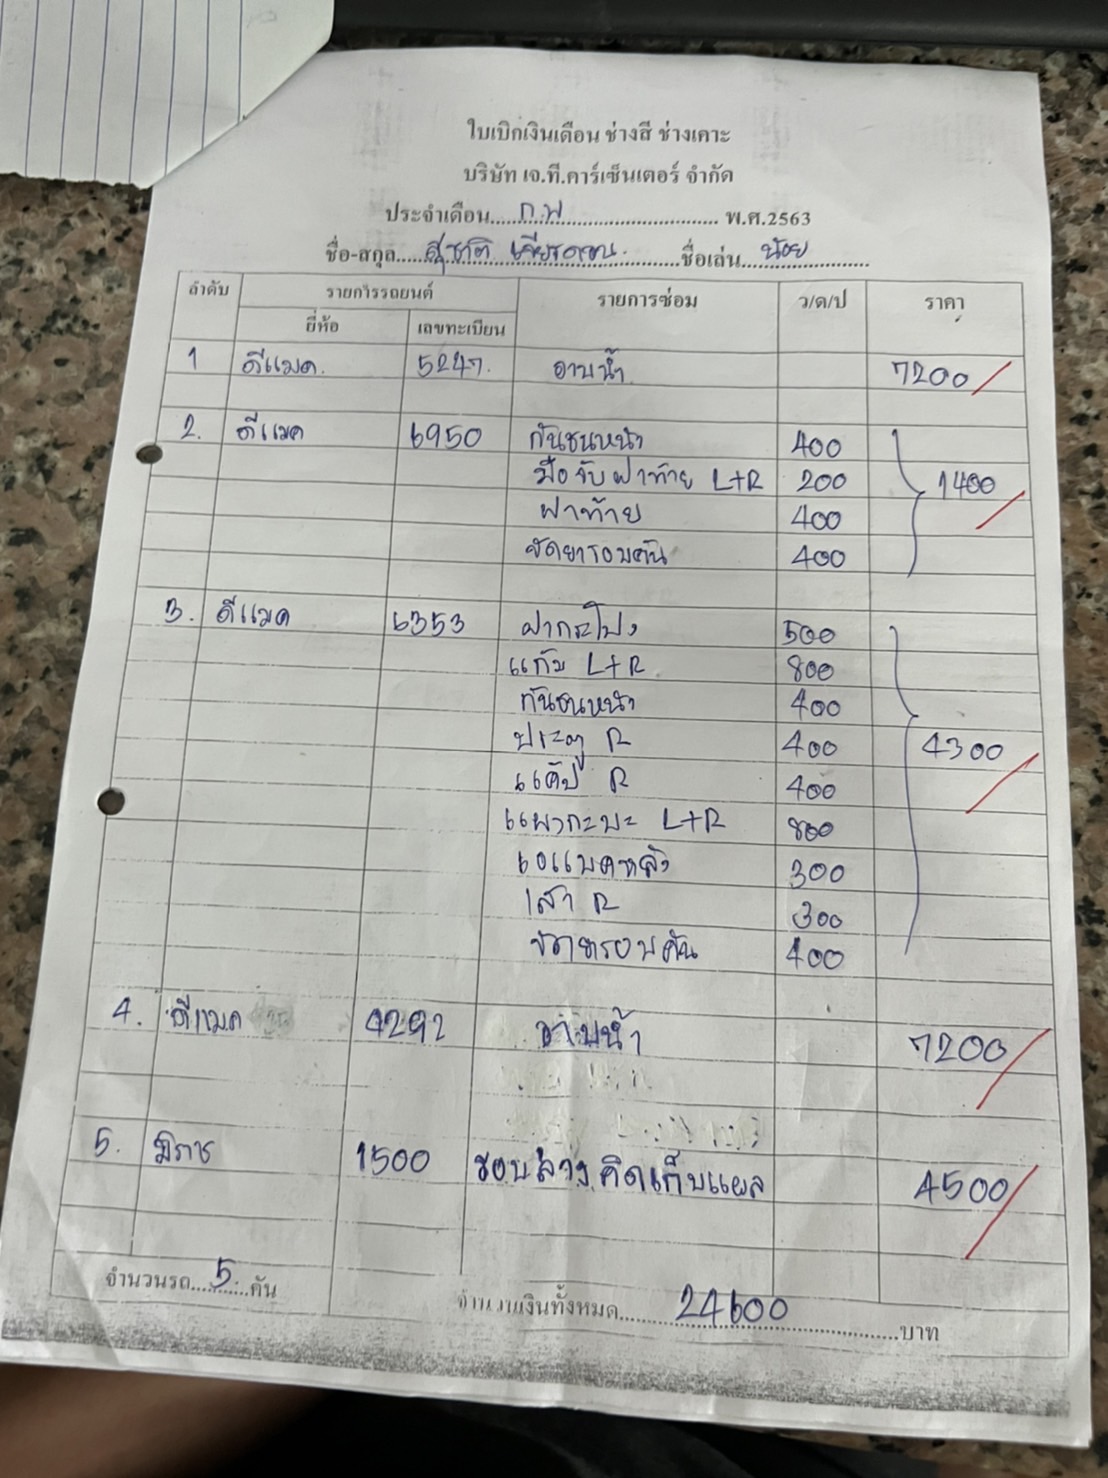 ใบเบิกเงินเดือน ช่างสี ช่างเคาะ
บริษัท เจ.ที.คาร์เซ็นเตอร์ จำกัด
ประจำเดือน.....ก.พ.................................... พ.ศ.2563
ชื่อ-สกุล.....สุชาติ ...........ชื่อเล่น...น้อย.............
ลำดับ รายการรถยนต์ รายการซ่อม ว/ด/ป ราคา
ยี่ห้อ เลขทะเบียน
1 ดีแมค. 5247. อาบน้ำ 7200
2. ดีแมค 6950 กันชนหน้า 400
มือจับฝาท้าย L+R 200 1400
ฝาท้าย 400
ขัดยารอบคัน 400
3. ดีแมค 6353 ฝากระโปง 500
แก้ม L+R 800
กันชนหน้า 400
ประตู R 400 4300
แค๊ป R 400
แผงกะบะ L+R 800
300
เสา R 300
รอบคัน 400
4. ดีแมค 4292 อาบน้ำ 7200
5. มิราจ 1500 รอบล่าง คิดเก็บแผล 4500
จำนวนรถ....5....คัน จำนวนเงินทั้งหมด......24600................บาท